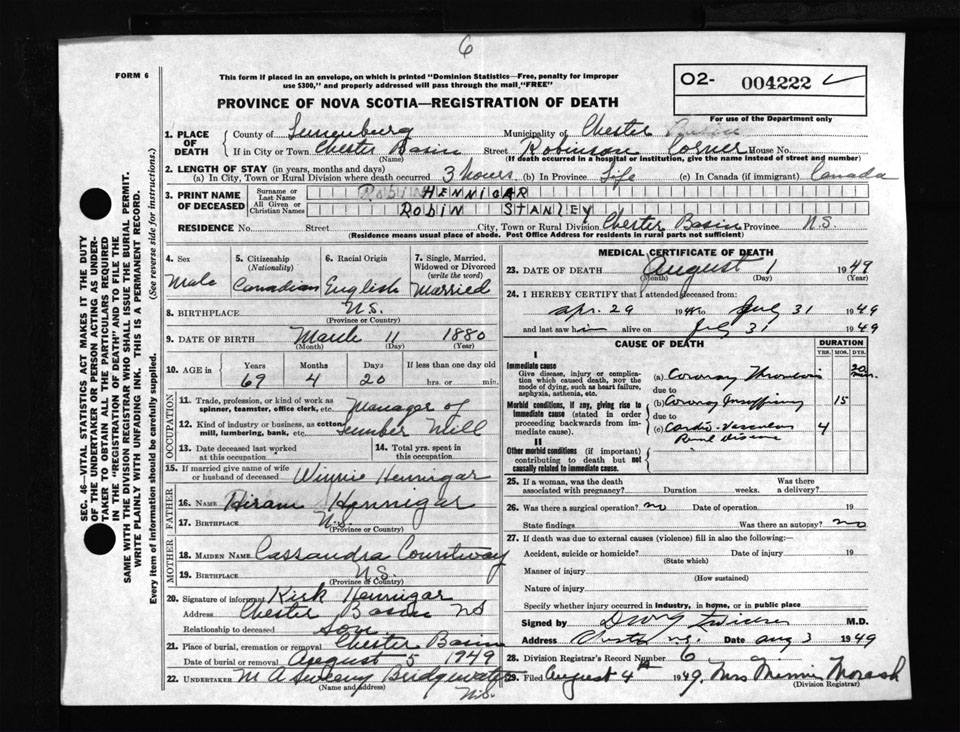 6
FORM 6
This form if placed in an envelope, on which is printed "Dominion Statistics—Free, penalty for improper
use $300," and properly addressed will pass through the mail "FREE"
O2- 004222
PROVINCE OF NOVA SCOTIA—REGISTRATION OF DEATH
For use of the Department only
1. PLACE OF DEATH
County of Lunenburg Municipality of Chester
If in City or Town Chester Basin Street Robinson Corner House No.
(Name) (If death occurred in a hospital or institution, give the name instead of street and number)
2. LENGTH OF STAY (in years, months and days)
(a) In City, Town or Rural Division where death occurred 3 hours. (b) In Province Life (c) In Canada (if immigrant) Canada
3. PRINT NAME OF DECEASED
Surname or Last Name HENNIGAR
All Given or Christian Names ROBIN STANLEY
RESIDENCE No. Street City, Town or Rural Division Chester Basin Province N.S.
(Residence means usual place of abode. Post Office Address for residents in rural parts not sufficient)
4. Sex
Male
5. Citizenship (Nationality)
Canadian
6. Racial Origin
English
7. Single, Married, Widowed or Divorced (write the word)
Married
8. BIRTHPLACE N.S.
(Province or Country)
9. DATE OF BIRTH March 11 1880
(Month) (Day) (Year)
10. AGE in Years Months Days If less than one day old
69 4 20 hrs. or min.
OCCUPATION
11. Trade, profession, or kind of work as
spinner, teamster, office clerk, etc. Manager of
12. Kind of industry or business, as cotton
mill, lumbering, bank, etc. Lumber Mill
13. Date deceased last worked at this occupation
14. Total yrs. spent in this occupation
15. If married give name of wife
or husband of deceased Winnie Hennigar
FATHER
16. NAME Hiram Hennigar
17. BIRTHPLACE N.S.
(Province or Country)
MOTHER
18. MAIDEN NAME Cassandra
19. BIRTHPLACE N.S.
(Province or Country)
20. Signature of informant Kirk Hennigar
Address Chester Basin NS
Relationship to deceased Son
21. Place of burial, cremation or removal Chester Basin
Date of burial or removal August 5 1949
22. UNDERTAKER M A Sweeny Bridgewater
(Name and address) N.S.
MEDICAL CERTIFICATE OF DEATH
23. DATE OF DEATH August 1 1949
(Month) (Day) (Year)
24. I HEREBY CERTIFY that I attended deceased from:
Apr. 29 1948 to July 31 1949
and last saw him alive on July 31 1949
CAUSE OF DEATH
DURATION
YRS. MOS. DYS.
I
Immediate cause
Give disease, injury or complication which caused death, not the mode of dying, such as heart failure, asphyxia, asthenia, etc.
(a) Coronary Thrombosis 20 min.
due to
Morbid conditions, if any, giving rise to immediate cause (stated in order proceeding backwards from immediate cause).
(b) Coronary Insufficiency 15
due to
(c) Cardio-Vascular 4
Renal disease
II
Other morbid conditions (if important) contributing to death but not causally related to immediate cause.
25. If a woman, was the death
associated with pregnancy? Duration weeks. Was there a delivery?
26. Was there a surgical operation? no Date of operation. 19
State findings Was there an autopsy? no
27. If death was due to external causes (violence) fill in also the following:—
Accident, suicide or homicide? Date of injury 19
(State which)
Manner of injury
(How sustained)
Nature of injury
Specify whether injury occurred in industry, in home, or in public place
Signed by M.D.
Address Chester N.S. Date Aug 3 1949
28. Division Registrar's Record Number 6
29. Filed August 4th 1949. Mrs Minnie Morash
(Division Registrar)
SEC. 46—VITAL STATISTICS ACT MAKES IT THE DUTY
OF THE UNDERTAKER OR PERSON ACTING AS UNDER-
TAKER TO OBTAIN ALL THE PARTICULARS REQUIRED
IN THE "REGISTRATION OF DEATH" AND TO FILE THE
SAME WITH THE DIVISION REGISTRAR WHO SHALL ISSUE THE BURIAL PERMIT.
WRITE PLAINLY WITH UNFADING INK. THIS IS A PERMANENT RECORD.
Every item of information should be carefully supplied. (See reverse side for instructions.)